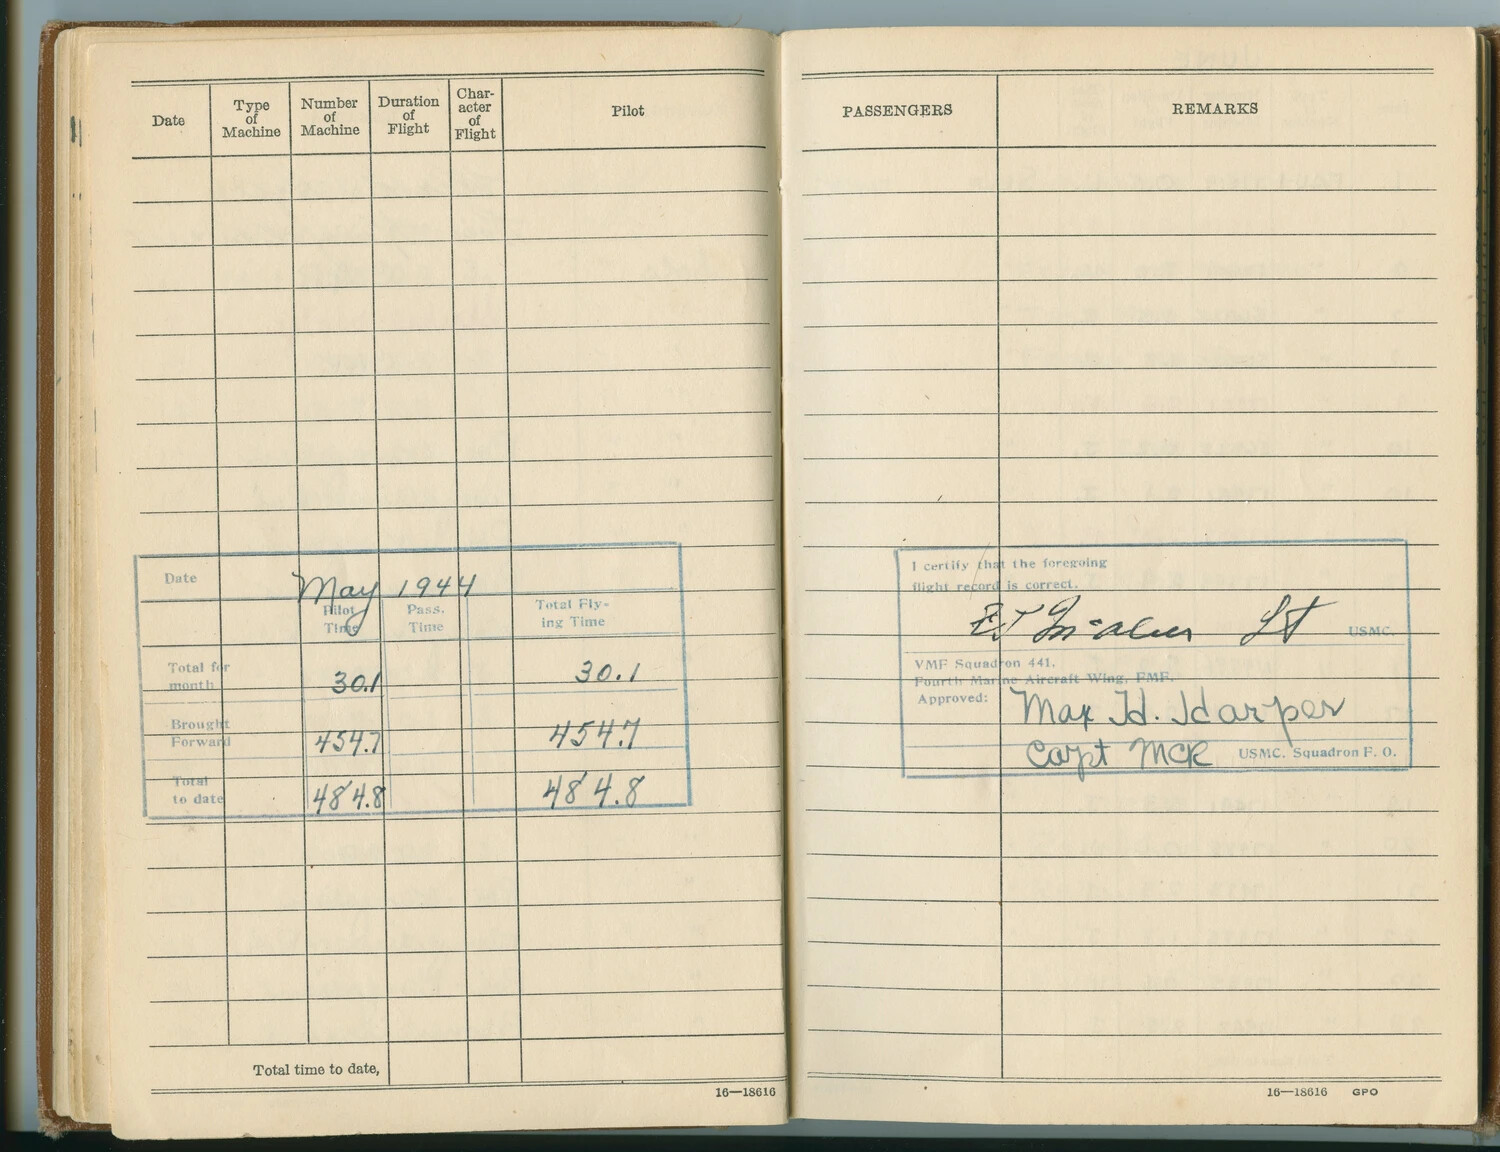 Date
Type of Machine
Number of Machine
Duration of Flight
Char-acter of Flight
Pilot
PASSENGERS
REMARKS
Date May 1944
Pilot Time
Pass. Time
Total Fly-ing Time
Total for month 30.1 30.1
Brought Forward 454.7 454.7
Total to date 484.8 484.8
Total time to date,
16—18616
I certify that the foregoing
flight record is correct.
Lt USMC.
VMF Squadron 441,
Fourth Marine Aircraft Wing, FMF.
Approved: Max H. Harper
Capt MCR USMC. Squadron F. O.
16—18616 GPO